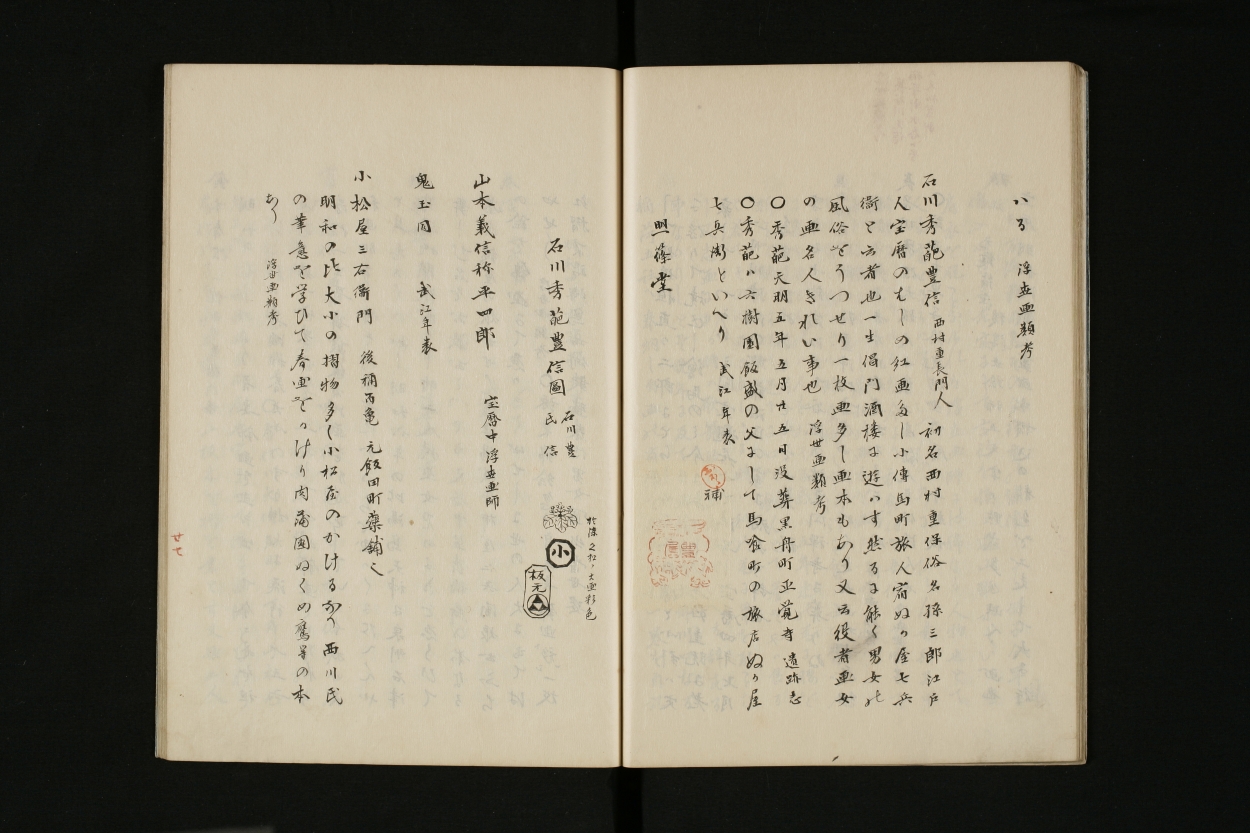 いふ 浮世画類考
石川秀葩豊信 西村重長門人 初名西村重保俗名孫三郎江戸
人宝暦のむしの紅画多し小傳馬町旅人宿ぬか屋七兵
衛と云者也一生倡門酒楼に遊はす然るに能く男女の
風俗をうつせり一枚画多し画本もあり又云役者画女
の画名人きれい事也 浮世画類考
〇秀葩天明五年五月廿五日没葬黒舟町正覚寺 遺跡志
〇秀葩ハ六樹園飯盛の父にして馬喰町の旅店ぬか屋
七兵衛といへり 武江年表
照篠堂
補
石川秀葩豊信圖 石川豊信
氏
小
板元
山本義信称平四郎 宝暦中浮世画師
鬼玉同 武江年表
小松屋三右衛門 後補百亀 元飯田町薬舗也
明和の比大小の摺物多し小松屋のかけるあり西川氏
の筆意を学ひて春画をかけり肉蒲団ぬくめ鷹等の本
あり 浮世画類考
廿七